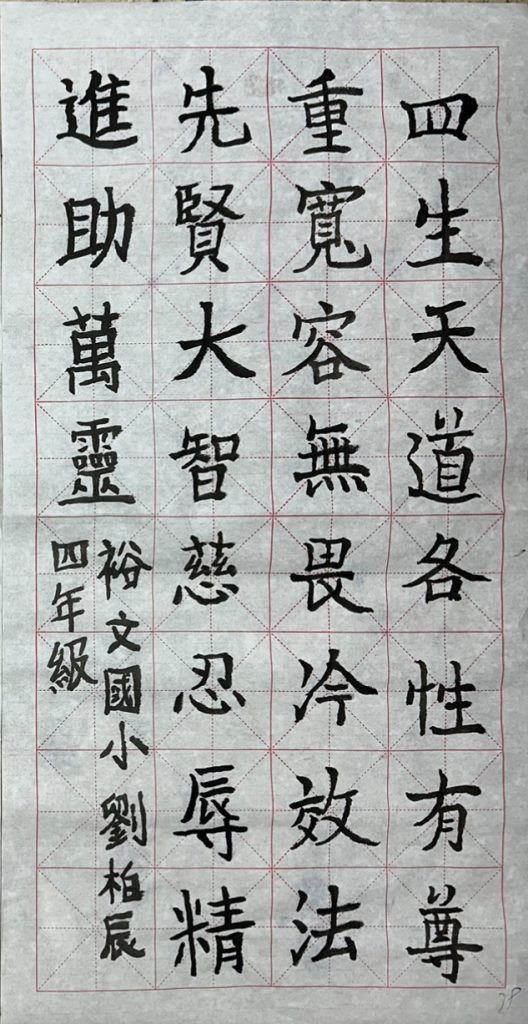 四生天道各性有尊
重寬容無畏冷效法
先賢大智慈忍辱精
進助萬靈
裕文國小劉柏辰
四年級